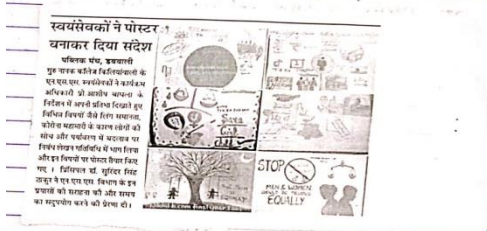 स्वयंसेवकों ने पोस्टर
बनाकर दिया संदेश
पब्लिक मंच, डबवाली
गुरु नानक कॉलेज किलियांवाली के
एन.एस.एस. स्वयंसेवकों ने कार्यक्रम
अधिकारी प्रो.आशीष बाघला के
निर्देशन में अपनी प्रतिभा दिखाते हुए
विभिन्न विषयों जैसे लिंग समानता,
कोरोना महामारी के कारण लोगों की
सोच और पर्यावरण में बदलाव पर
निबंध लेखन गतिविधि में भाग लिया
और इन विषयों पर पोस्टर तैयार किए
गए । प्रिंसिपल डॉ. सुरिंदर सिंह
ठाकुर ने एन.एस.एस. विभाग के इन
प्रयासों की सराहना की और समय
का सदुपयोग करने की प्रेरणा दी।
Save
Girl
STOP
MEN & WOMEN
EQUALLY